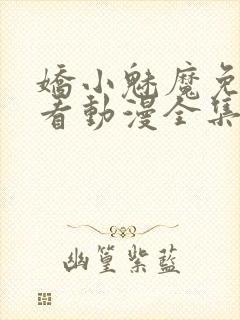 嬌小魅魔免
看動漫全集
幽篁紫藍